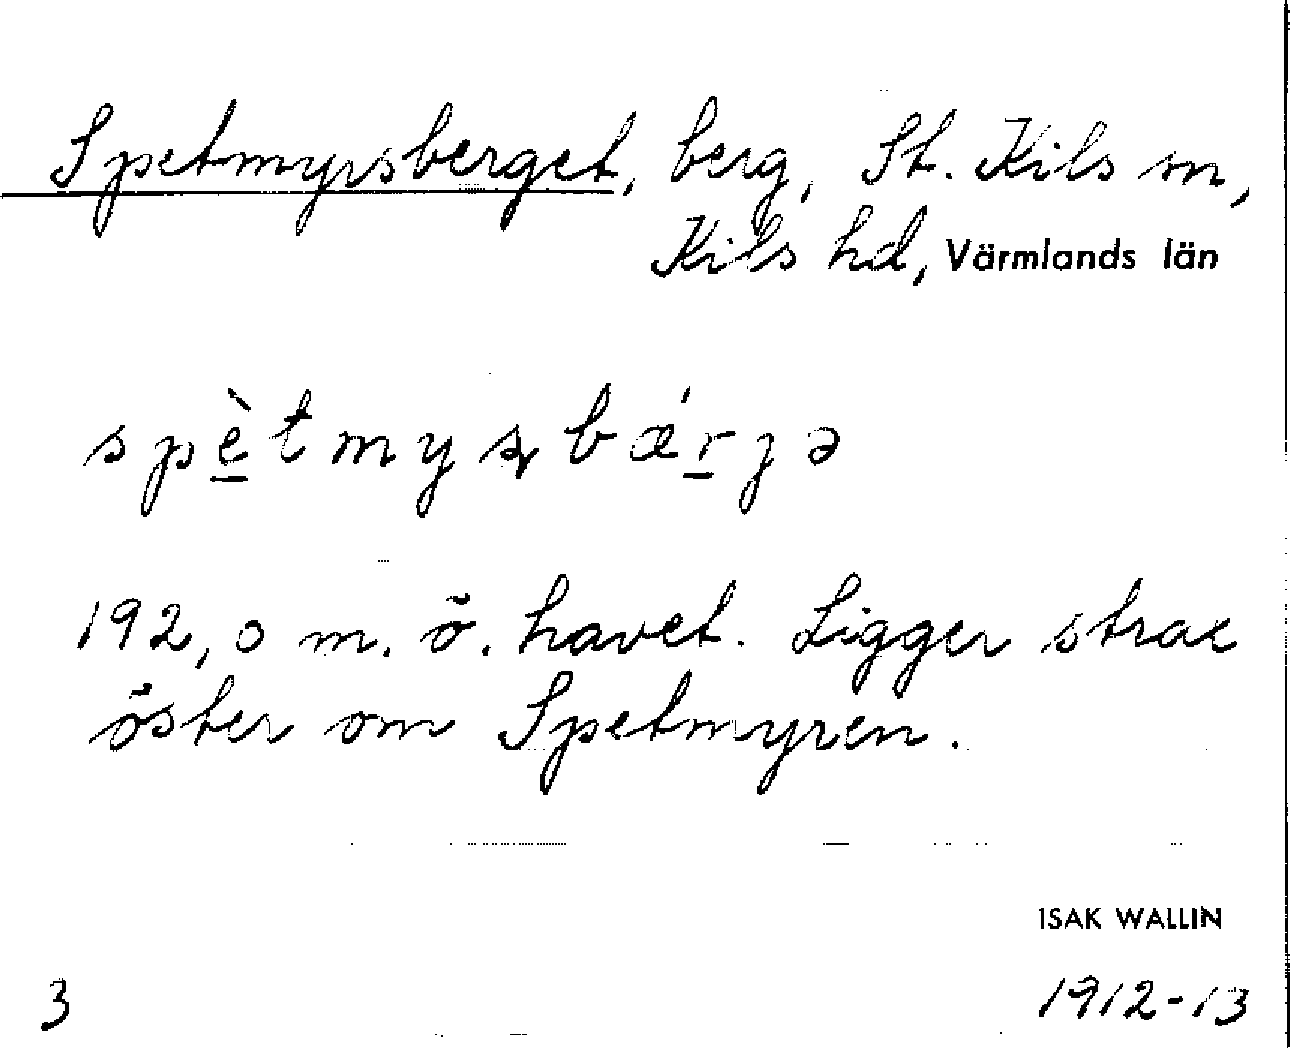 Spetmyrsberget, berg, St. Kils sn,
Kils hd, Värmlands län
spètmyʂbǽrjə
192,0 m. ö. havet. Ligger strax
öster om Spetmyren.
ISAK WALLIN
3 1912-13